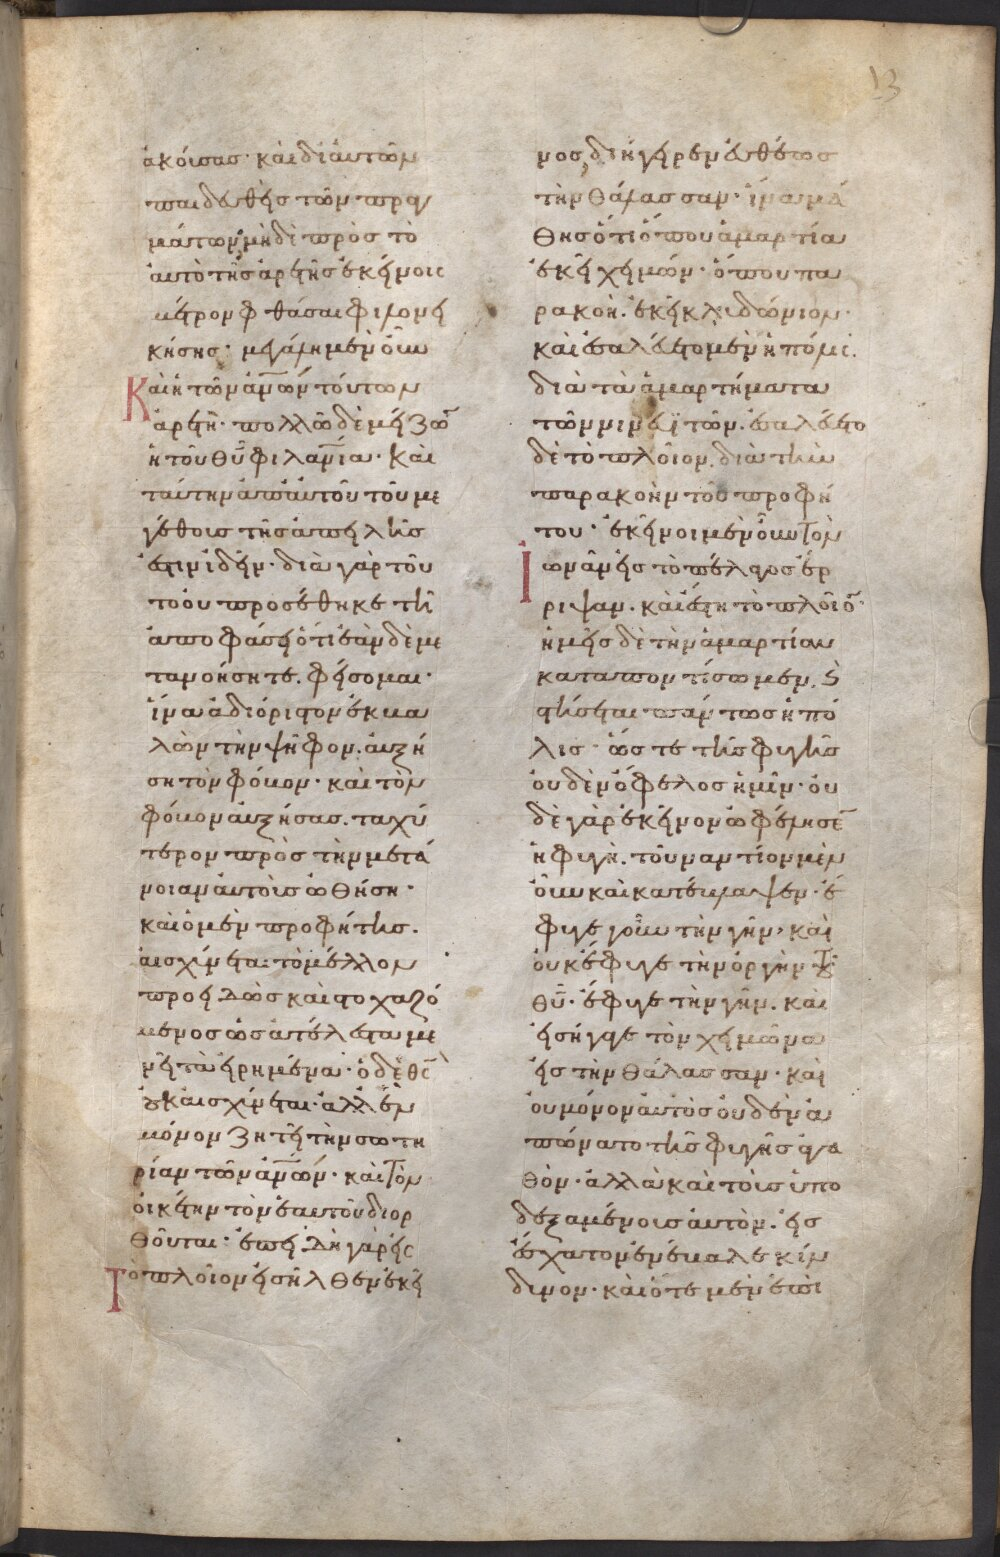 ἀκούσας· καὶ δι' αὐτῶν
παιδευθεὶς τῶν πραγ
μάτων, μὴ δὲ πρὸς τὸ
αὐτὸ τῆς ἀρετῆς ἐκείνοις
μέτρον φθάσαι φιλονει
κήσης· μεγάλη μὲν οὖν
Καὶ ἡ τῶν ἀν̅ων τούτων
ἀρετὴ· πολλῶ δὲ μείζων
ἡ τοῦ θ̅υ φιλαν̅ία· καὶ
ταύτην ἀπ' αὐτοῦ τοῦ με
γέθους τῆς ἀπειλῆς
ἔστιν ἰδεῖν· διὰ γὰρ τοῦ
το οὐ προσέθηκε τῆ
ἀποφάσει ὅτι ἐὰν δὲ με
τανοήσητε. φείσομαι·
ἵνα ἀδιόριστον ἐκβα
λὼν τὴν ψῆφον. αὐξή
ση τὸν φόβον· καὶ τὸν
φόβον αὐξήσας. ταχύ
τερον πρὸς τὴν μετά
νοιαν αὐτοὺς ὠθήση·
καὶ ὁ μὲν προφήτης.
αἰσχύνεται τὸ μέλλον
προειδὼς καὶ στοχαζό
μενος ὡς ἀτέλεστα με
νεῖ τὰ εἰρημένα· ὁ δὲ θ̅ς
οὐκ αἰσχύνεται· ἀλλ' ἓν
μόνον ζητεῖ τὴν σωτη
ρίαν τῶν ἀν̅ων· καὶ τὸν
οἰκέτην τὸν ἑαυτοῦ διορ
θοῦται· ἐπειδὴ γὰρ εἰς
Τὸ πλοῖον εἰσῆλθεν ἐκεῖ
13
νος, διήγειρεν εὐθέως
τὴν θάλασσαν· ἵνα μά
θης ὅτι ὅπου ἁμαρτία
ἐκεῖ χειμών· ὅπου πα
ρακοὴ. ἐκεῖ κλυδώνιον·
καὶ ἐσαλεύετο μὲν ἡ πόλις.
διὰ τὰ ἁμαρτήματα
τῶν νινευϊτῶν. ἐσαλεύετο
δὲ τὸ πλοῖον. διὰ τὴν
παρακοὴν τοῦ προφή
του· ἐκεῖνοι μὲν οὖν τὸν
Ἰωνᾶν εἰς τὸ πέλαγος ἔρ
ριψαν. καὶ ἔστη τὸ πλοῖον·
ἡμεῖς δὲ τὴν ἁμαρτίαν
καταποντίσωμεν. ϗ
στήσεται πάντως ἡ πό
λις· ὥστε τῆς φυγῆς
οὐδὲν ὄφελος ἡμῖν· οὐ
δὲ γὰρ ἐκεῖνον ὠφέλησεν
ἡ φυγὴ. τοὐναντίον μὲν
οὖν καὶ κατέβλαψεν· ἔ
φυγε γοῦν τὴν γῆν· καὶ
οὐκ ἔφυγε τὴν ὀργὴν τοῦ
θ̅υ· ἔφυγε τὴν γῆν. καὶ
εἰσήγαγε τὸν χειμῶνα
εἰς τὴν θάλασσαν· καὶ
οὐ μόνον αὐτὸς οὐδὲν ἀ
πώνατο τῆς φυγῆς ἀγα
θὸν· ἀλλὰ καὶ τοὺς ὑπο
δεξαμένους αὐτὸν. εἰς
ἔσχατον ἐνέβαλε κίν
δυνον· καὶ ὅτε μὲν ἐπὶ